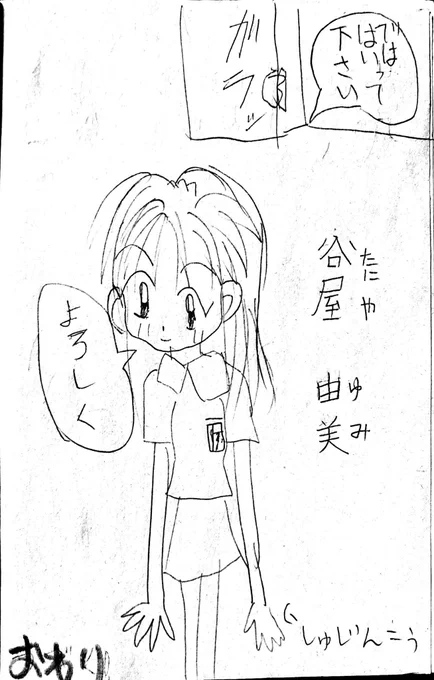 ではいって
下さい
ガラッ
谷屋 由美
たにや ゆみ
よろしく
しゅじんこう
おわり